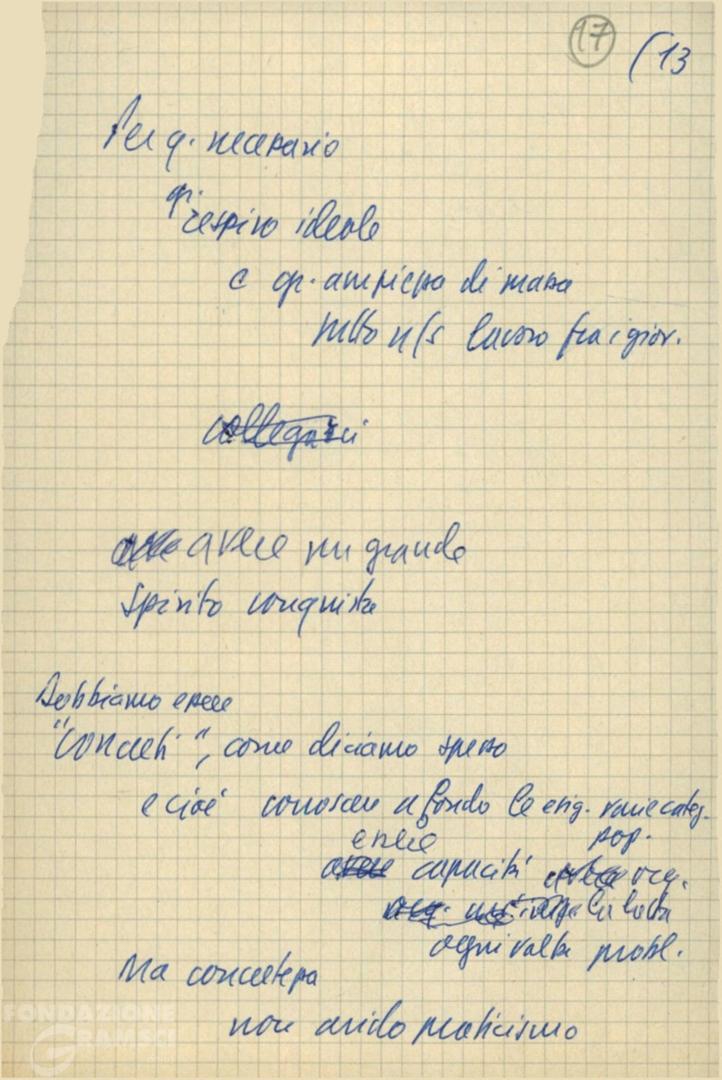 17 (13
Per q. necessario
gr.
respiro ideale
e gr. ampiezza di massa
tutto n/s lavoro fra i giov.
collegarci
avere un grande
spirito conquista
Dobbiamo essere
"concreti", come diciamo spesso
e cioè conoscere a fondo le esig. varie categ.
pop.
essere
avere capacità org.
la lotta
ogni volta probl.
Ma concretezza
non arido praticismo
FONDAZIONE
GRAMSCI